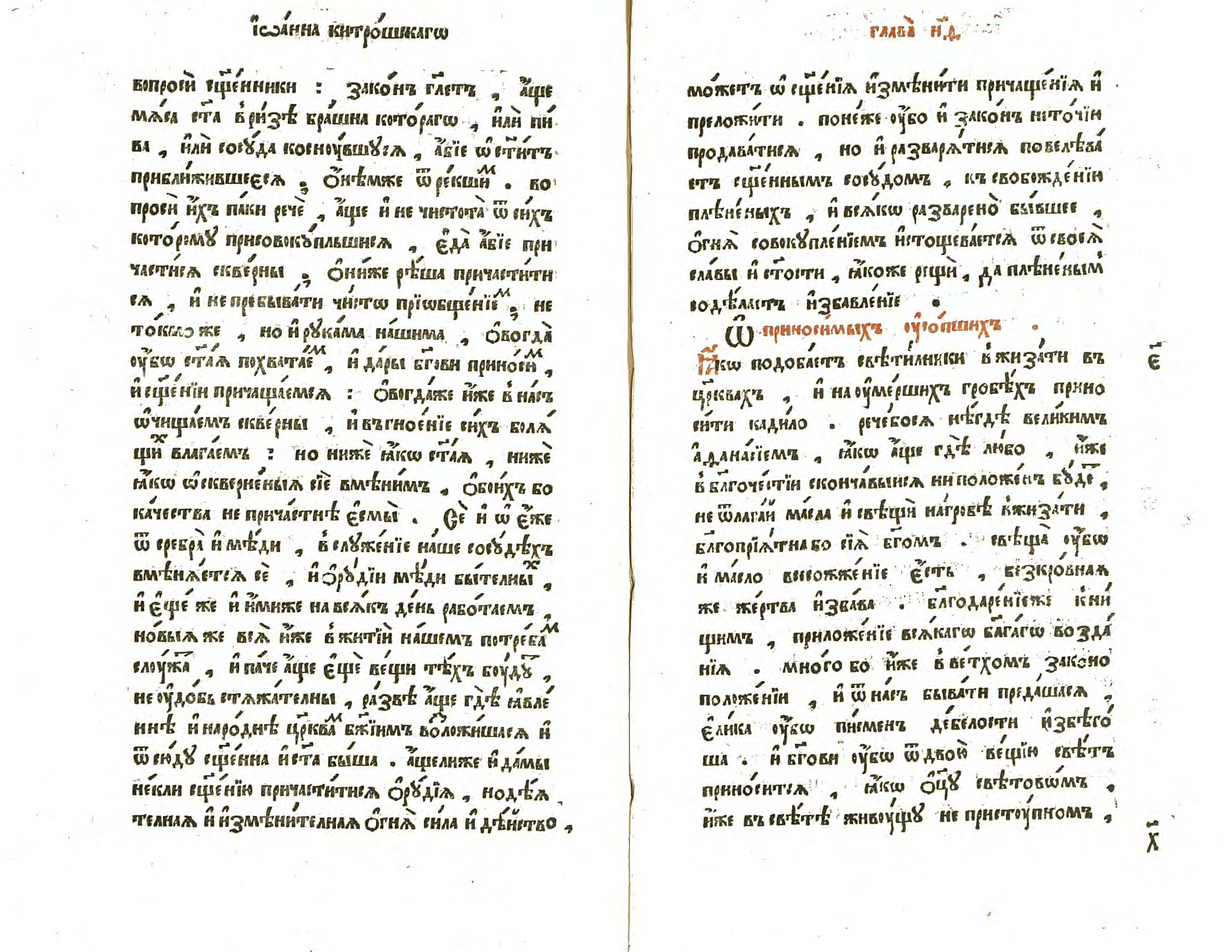 Їѡа́нна китро́шкагѡ
вопросѝ сщ҃е́нники : зако́нъ гл҃етъ , а҆́ще
мѧ́са ст҃а в̾ри́зѣ бра́шна кото́рагѡ , и҆лѝ пи
ва , и҆лѝ сосу́да косноу́вшусѧ , а҆́бїе ѡ҆ст҃и́тъ
прибли́жившеесѧ . ѻ҆нѣ́мже ѿре́кшиⷨ . во
просѝ и҆́хъ па́ки речѐ , а҆́ще и҆ не чистота̀ ѿ си́хъ
кото́рому присовоку́пльшисѧ , є҆да̀ а҆́бїе при
части́сѧ скве́рны . ѻ҆ни́же рѣ́ша причасти́ти
сѧ , и҆ не пребыва́ти чи́стѡ прїѡбще́нїеⷨ . не
то́кмо же , но и҆ рука́ма на́шима , ѻ҆вогда̀
оу҆́бѡ ст҃а́ѧ похвата́еⷨ , и҆ да́ры бг҃ови прино́сиⷨ ,
и҆ сщ҃е́нїи причаща́емсѧ : ѻ҆вогда́же и҆́же в̾ на́съ
ѡ҆чища́емъ скве́рны , и҆ въ гное́нїе си́хъ болѧ́
щиⷯ влага́емъ : но нижѐ ꙗ҆́кѡ ст҃а́ѧ , нижѐ
ꙗ҆́кѡ ѡ҆скверне́ныѧ сїѐ вмѣни́мъ , ѻ҆бои́хъ бо
ка́чества не прича́стнѣ є҆смы̀ . Сѐ и҆ ѡ҆ є҆́же
ѿ сребра̀ и҆ мѣ́ди , в̾ слꙋже́нїе на́ше сосу́дѣхъ
вмѣнѧ́етсѧ сѐ , и҆ ѻ҆ру́дїи мѣ́ди бы́телныⷯ ,
и҆ є҆ще́ же и҆ и҆́миже на всѧ́къ де́нь рабо́таемъ ,
но́выѧ же всѧ̀ и҆́же в̾ житїѝ на́шемъ потре́баⷨ
слоу́жа , и҆ па́че а҆́ще є҆щѐ ве́щи тѣ́хъ боу́дꙋ ,
не оу҆до́бь стѧжа́телны , ра́звѣ а҆́ще гдѣ̀ ꙗ҆́вле
ннѣ и҆ наро́днѣ цр҃кваⷨ бж҃їимъ возложи́шасѧ и҆
ѿсю́ду сщ҃е́нна и҆ ст҃а бы́ша . а҆́щелиже и҆ да́мы
нѣ́кли сщ҃е́нїю причасти́тисѧ ѻ҆ру́дїѧ , но дѣ́ѧ
телнаѧ и҆ и҆змѣни́телнаѧ ѻ҆гнѧ̀ си́ла и҆ дѣ́йство ,
глава̀ н҃д
мо́жетъ ѡ҆ сщ҃е́нїѧ и҆змѣни́ти причаще́нїѧ и҆
преложи́ти . поне́же оу҆́бо и҆ зако́нъ неточїю
продава́тисѧ , но и҆ разварѧ́тисѧ повелѣва́
етъ сщ҃е́ннымъ сосу́дом , къ свобожде́нїю
плѣне́ныхъ , и҆ всѧ́кѡ разваре́но бы́вшее ,
ѻ҆гнѧ̀ совокупле́нїемъ и҆стощева́етсѧ ѿ своеѧ̀
сла́вы и҆ ст҃ости , ꙗ҆́коже рещѝ , да плѣне́ным
содѣ́лаетъ и҆збавле́нїе .
Ѡ҆ приноси́мыхъ оу҆со́пшихъ .
Ꙗ҆́кѡ подоба́етъ свѣти́лники вжиза́ти въ
цр҃ква́хъ , и҆ на оу҆ме́ршихъ гробѣ́хъ прино
си́ти кади́ло . рече́босѧ нѣ́гдѣ вели́кимъ
а҆ѳана́сїемъ , ꙗ҆́кѡ а҆́ще гдѣ̀ лю́бо , и҆́же
в̾ бл҃гоче́стїи сконча́выисѧ ни положе́нъ бу́де ,
не ѿлага́й ма́сла и҆ свѣщѝ на гро́бѣ вжиза́ти ,
бл҃гопрїѧ́тна бо сїѧ̀ бг҃омъ . свѣща̀ оу҆́бѡ
и҆ ма́сло всесожже́нїе є҆́сть , безкро́внаѧ
же же́ртва и҆зва́ва . бл҃годаре́нїеже к̾ни́
щимъ , приложе́нїе всѧ́кагѡ бл҃га́гѡ возда́
нїѧ . мно́го бо и҆́же в̾ ве́тхомъ зако́но
положе́нїи , и҆ ѿ на́съ быва́ти преда́шасѧ ,
є҆ли́ка оу҆́бѡ пи́смен дебе́лости и҆збѣ́го
ша . и҆ бг҃ови оу҆́бѡ ѿ двою̀ ве́щїю свѣ́тъ
прино́ситсѧ , ꙗ҆́кѡ ѻ҆ц҃у свѣ́товѡмъ ,
и҆́же въ свѣ́тѣ живоу́щу не пристоу́пном ,
є҃
х҃